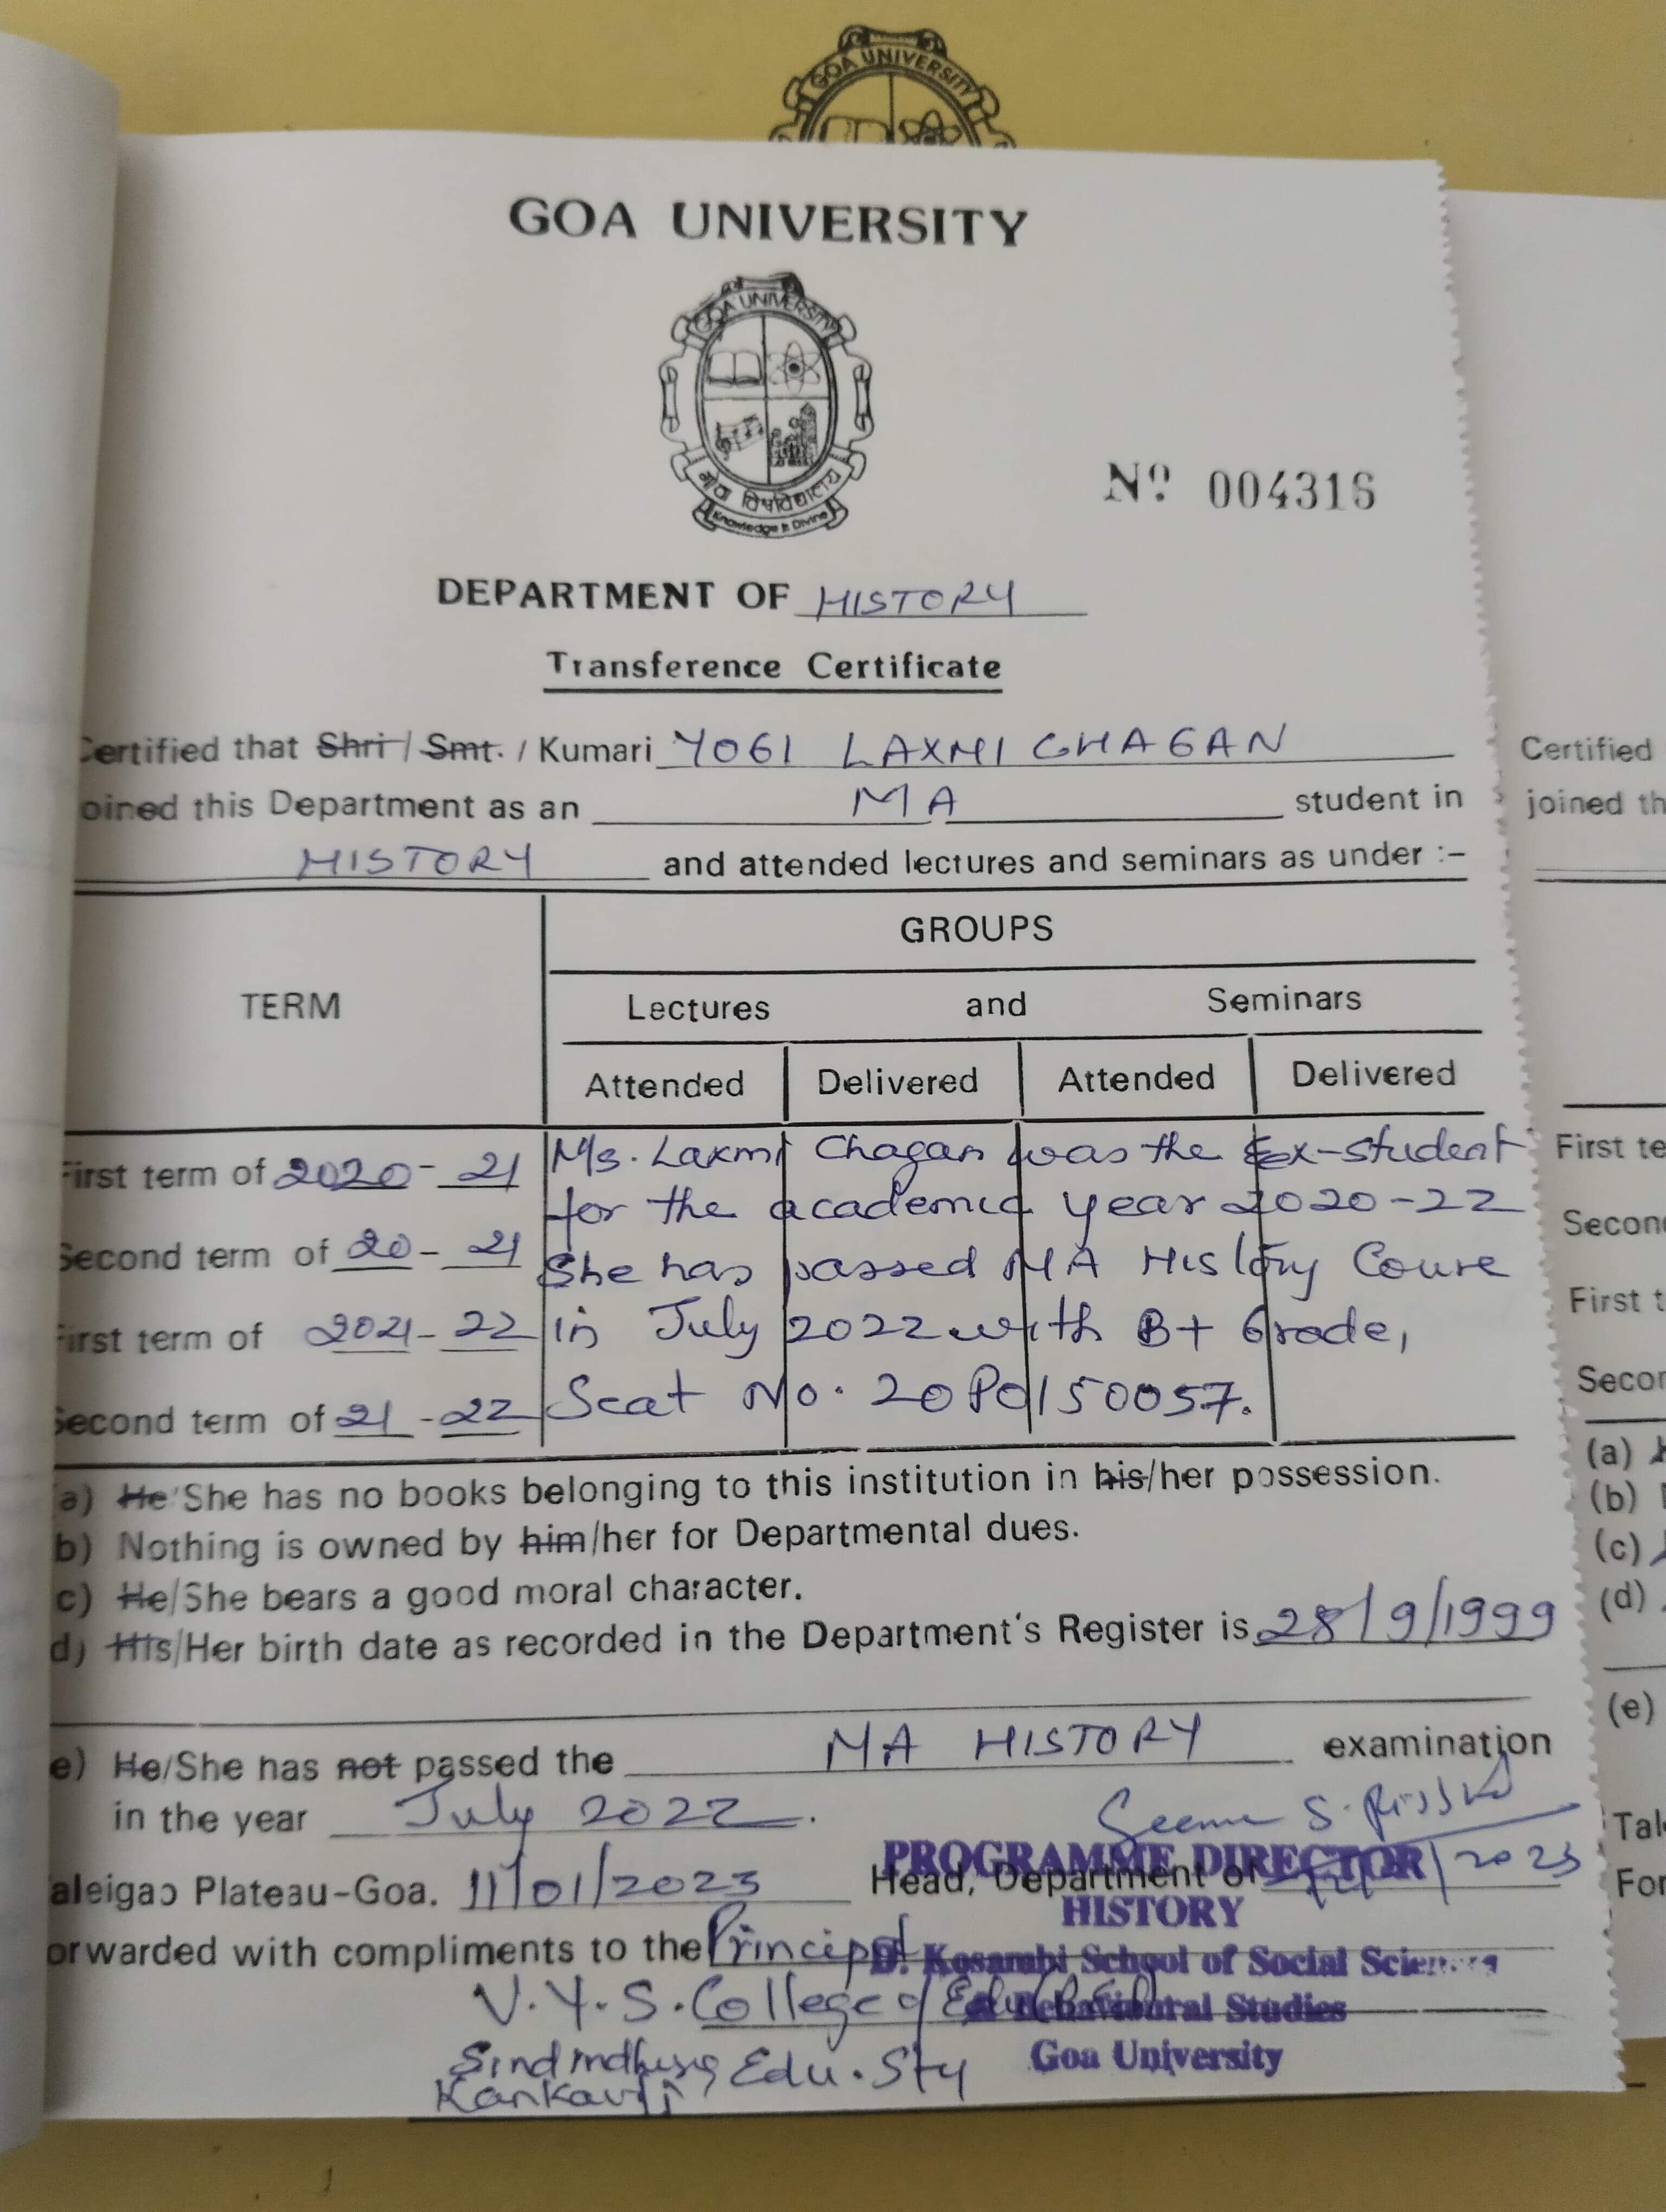 GOA UNIVERSITY
GOA UNIVERSITY
GOA UNIVERSITY
गोंय विश्वविद्यालय
Knowledge is Divine
Nº 004316
DEPARTMENT OF HISTORY
Transference Certificate
Certified that Shri / Smt. / Kumari YOGI LAXMI CHAGAN
oined this Department as an MA student in
HISTORY and attended lectures and seminars as under :-
GROUPS
TERM Lectures and Seminars
Attended Delivered Attended Delivered
First term of 2020-21 M/s. Laxmi Chagan was the Ex-student
for the academic year 2020-22
Second term of 20-21 She has passed MA History Course
First term of 2021-22 in July 2022 with B+ Grade,
Second term of 21-22 Seat No. 20P0150057.
a) He/She has no books belonging to this institution in his/her possession.
b) Nothing is owned by him/her for Departmental dues.
c) He/She bears a good moral character.
d) His/Her birth date as recorded in the Department's Register is 28/9/1999
e) He/She has not passed the MA HISTORY examination
in the year July 2022.
aleigao Plateau-Goa. 11/01/2023 Head, Department of
PROGRAMME DIRECTOR
HISTORY
orwarded with compliments to the Principal
D. Kosambi School of Social Sciences
V.Y.S. College of Edu
& Behavioural Studies
Goa University
Sindhudurg Edu. Sty
Kankavli
Certified
joined th
First te
Second
First t
Secon
(a)
(b)
(c)
(d)
(e)
Tal
For